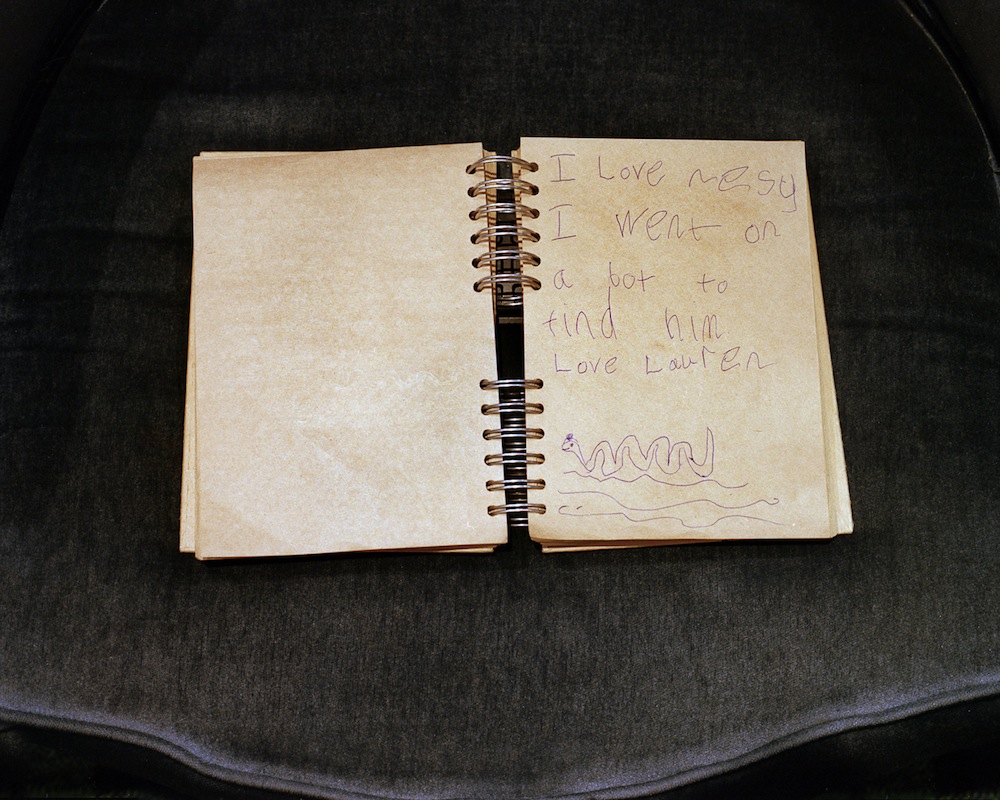 I Love nesy
I went on
a bot to
find him
Love Lauren